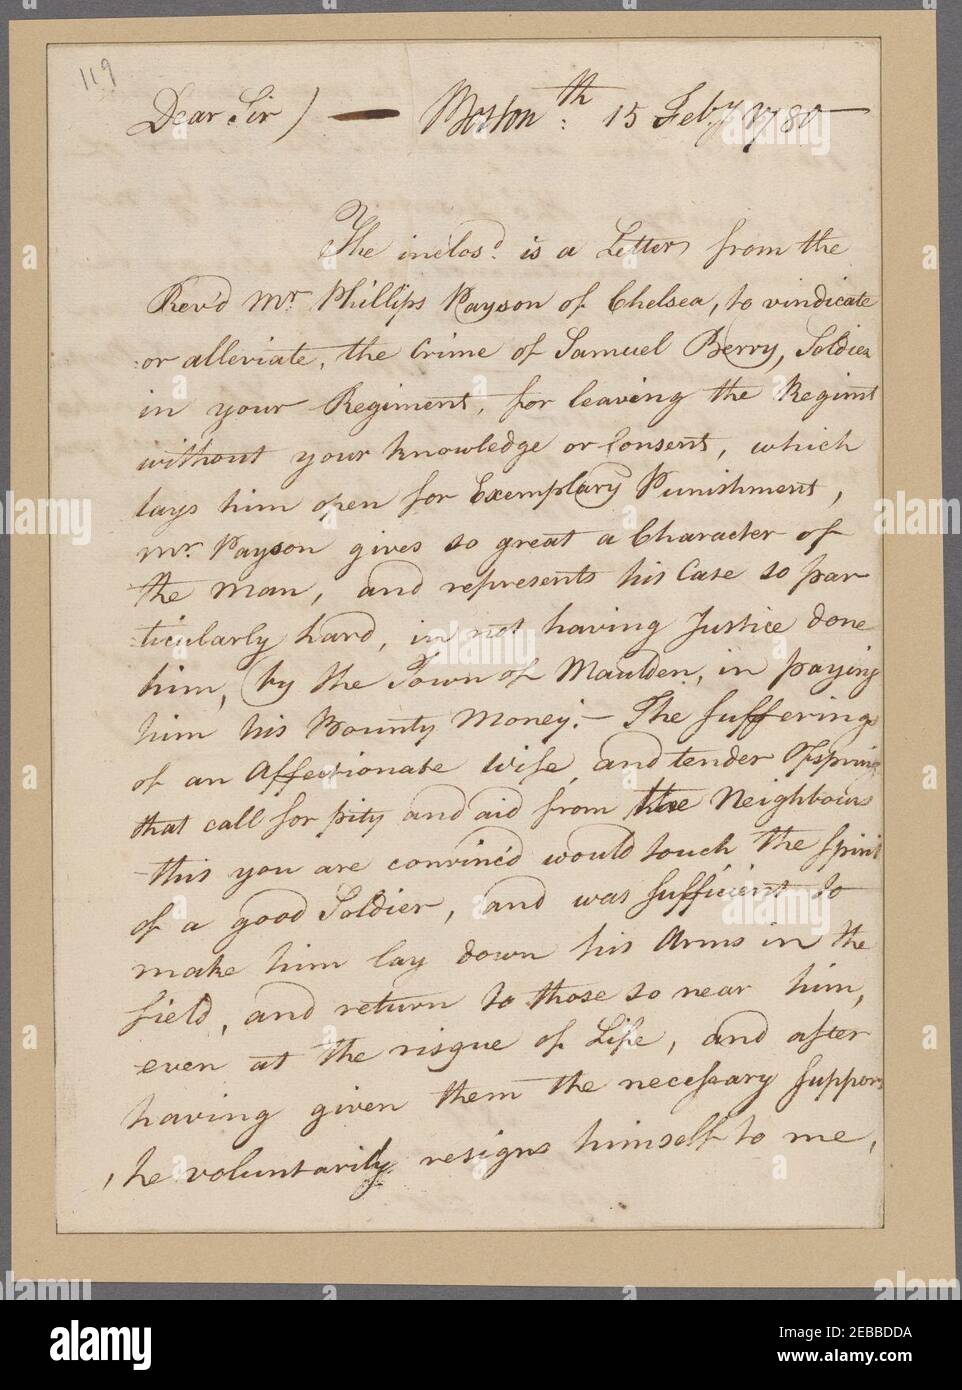 119
Dear Sir) — Boston: th 15 Feby 1780 —
The inclosd. is a Letter from the
Rev'd Mr. Phillips Payson of Chelsea, to vindicate
or alleviate, the Crime of Samuel Berry, Soldier
in your Regiment, for leaving the Regimt
without your knowledge or Consent, which
lays him open for Exemplary Punishment,
Mr. Payson gives so great a Character of
the man, and represents his Case so par-
:ticularly hard, in not having Justice done
him, by the Town of Maulden, in paying
him his Bounty Money. — The suffering
of an Affectionate wife, and tender Ofspring
that call for pity and aid from the Neighbours
this you are convinc'd would touch the spirit
of a good Soldier, and was sufficient to
make him lay down his Arms in the
field, and return to those so near him,
even at the risque of Life, and after
having given them the necessary support
, he voluntarily resigns himself to me,
alamy
Image ID: 2EBBDDA
www.alamy.com